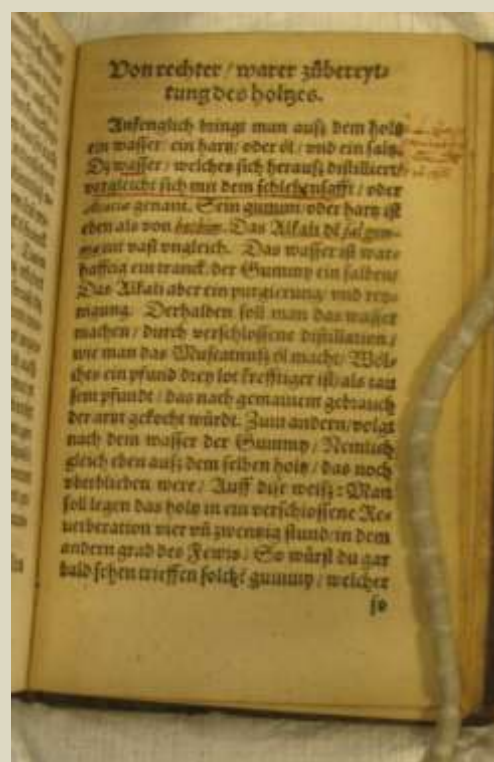 Von rechter / warer zůbereyt⸗
tung des holtzes.
Anfenglich bringt man auß dem holtz
ein wasser / ein hartz / oder öl / vnd ein saltz.
Dz wasser / welches sich herauß distilliert /
vergleicht sich mit dem schlehensafft / oder
genant. Sein gummi / oder hartz ist
eben als von Das Alkali dē sal gem⸗
nit vast vngleich. Das wasser ist war⸗
hafftig ein tranck / der Gummy ein salben /
Das Alkali aber ein purgierung / vnd rey⸗
nigung. Derhalben soll man das wasser
machen / durch verschlossene distillation /
wie man das Muscatnuß öl macht / Wöl⸗
ches ein pfund drey lot krefftiger ist / als tau
sent pfundt / das nach gemainem gebrauch
der artzt gekocht würdt. Zum andern / volgt
nach dem wasser der Gummy / Nemlich
gleich eben auß dem selben holtz / das noch
vberblieben were / Auff dise weiß: Man
soll legen das holtz in ein verschlossene Re⸗
uerberation vier vñ zwentzig stund / in dem
andern grad des Fewrs / So würst du gar
bald sehen trieffen solchē gummy / welcher
so